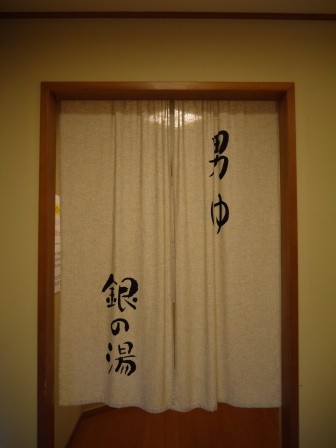 男ゆ
銀の湯